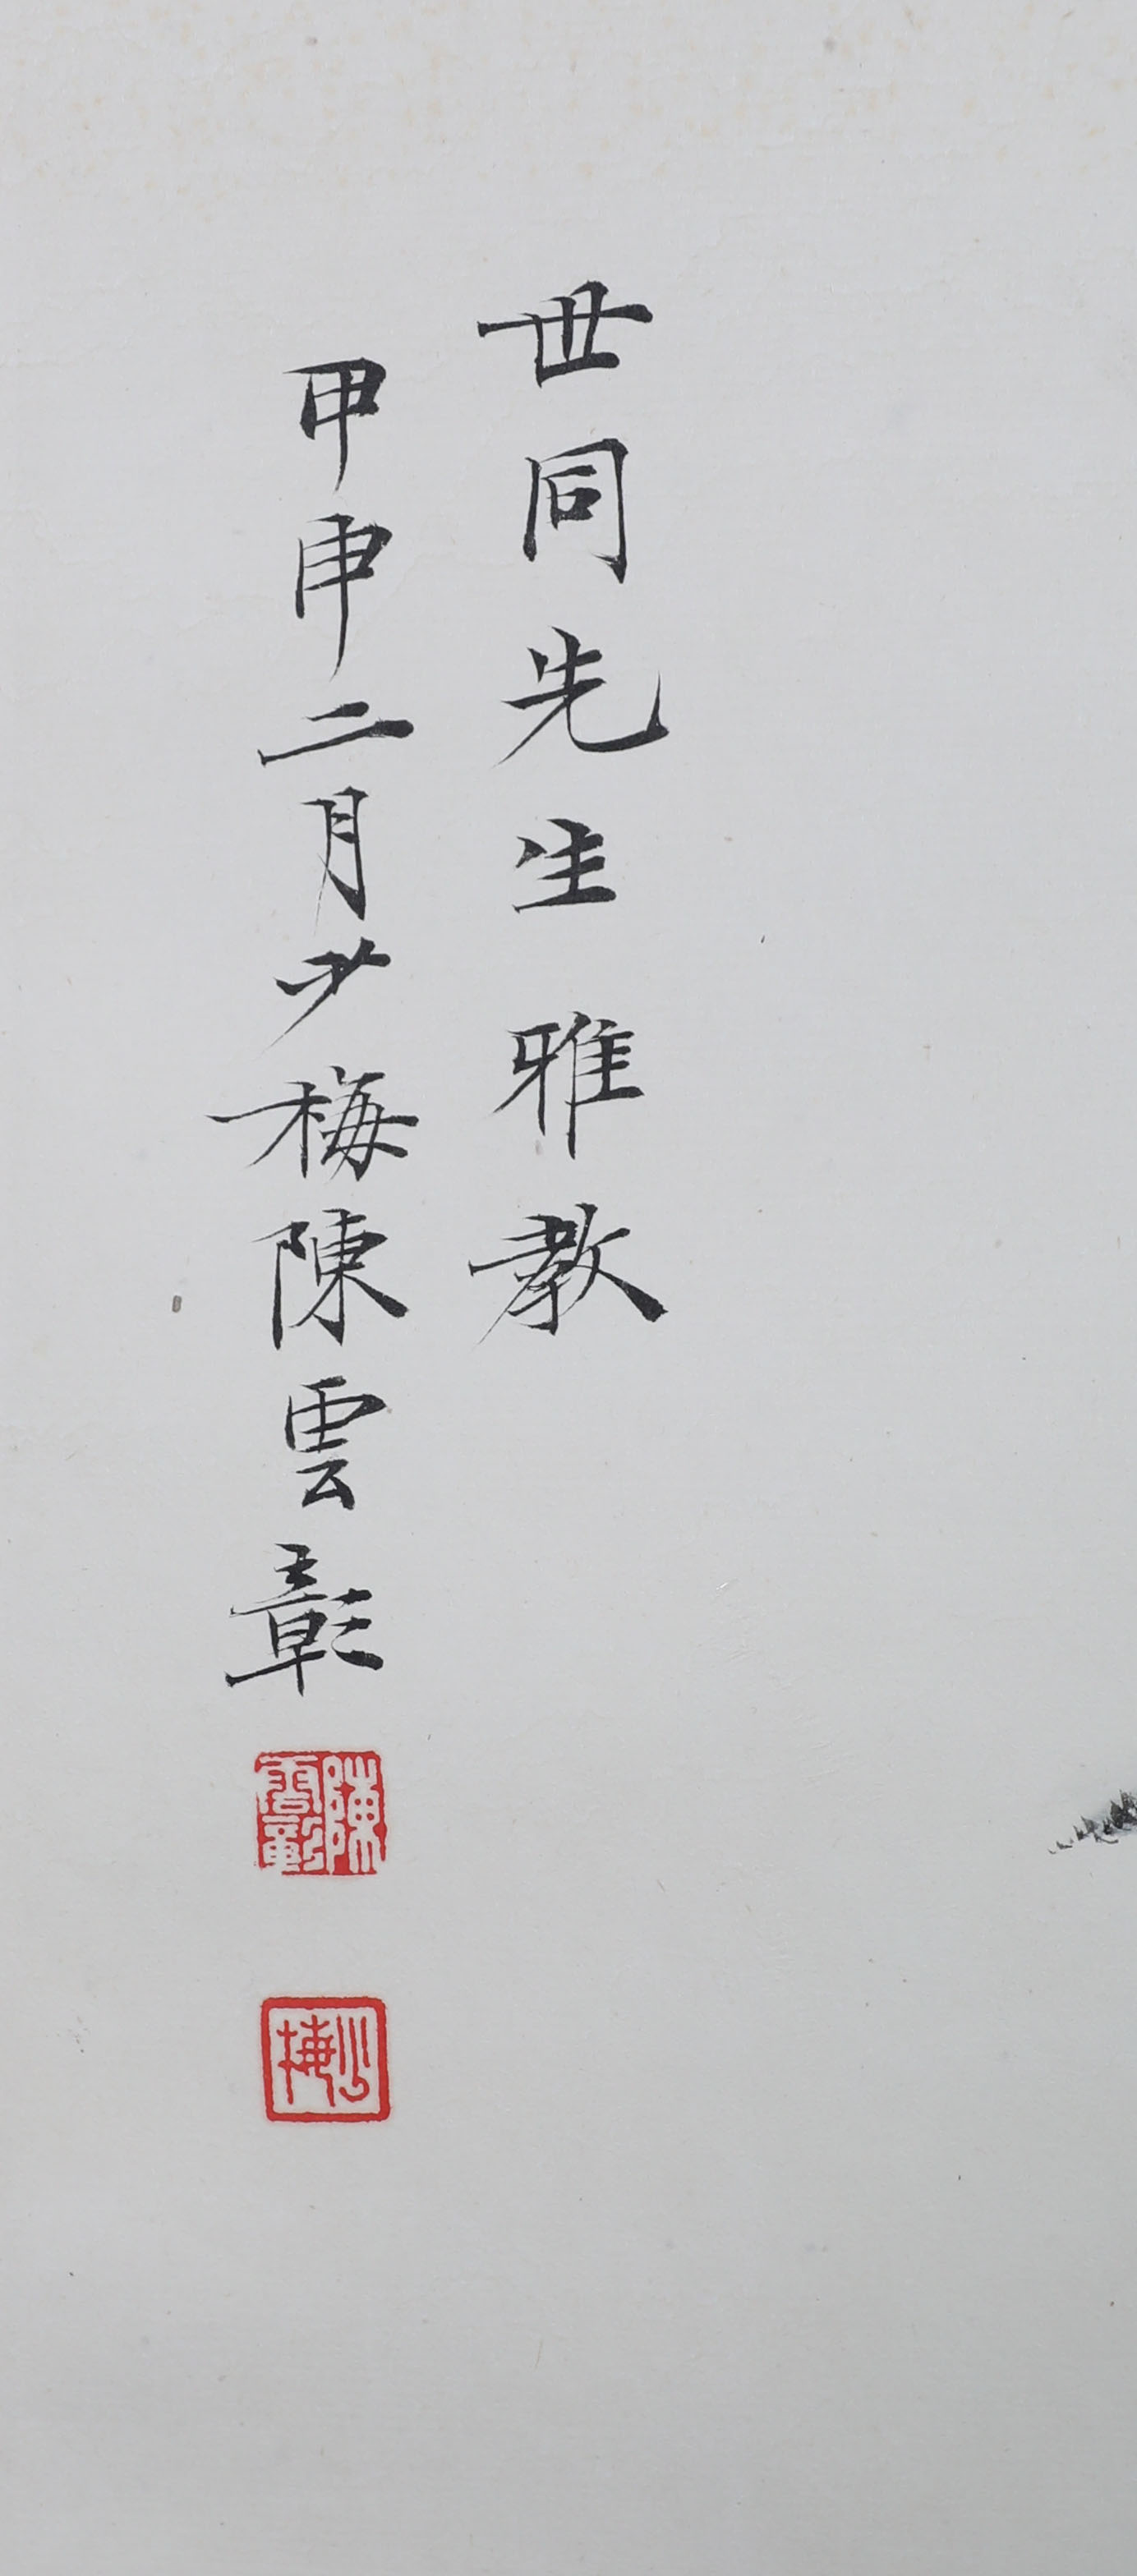 世同先生雅教
甲申二月少梅陳雲彰
陳雲彰
少梅